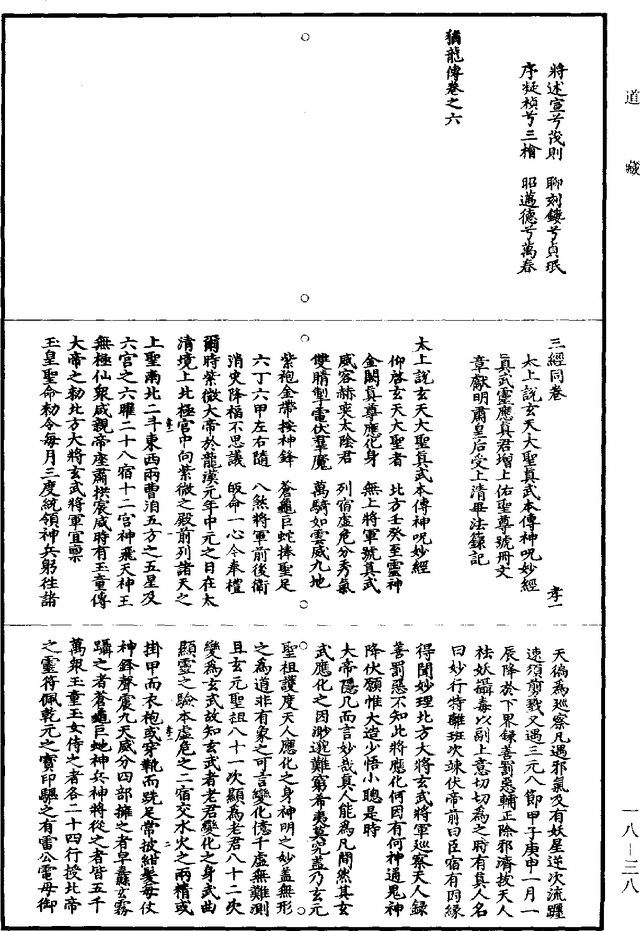 道藏
將述宣兮茂則　聊刻鏤兮貞珉
序凝禎兮三檜　昭邁德兮萬春
猶龍傳卷之六
三經同卷
太上說玄天大聖真武本傳神呪妙經
真武靈應真君增上佑聖尊號冊文
章獻明肅皇后受上清畢法籙記
孝一
太上說玄天大聖真武本傳神呪妙經
仰啓玄天大聖者　北方壬癸至靈神
金闕真尊應化身　無上將軍號真武
威容赫奕太陰君　列宿虛危分秀氣
雙睛掣電伏群魔　萬騎如雲威九地
紫袍金帶按神鋒　蒼龜巨蛇捧聖足
六丁六甲左右隨　八煞將軍前後衛
消灾降福不思議　皈命一心今奉禮
爾時紫微大帝於龍漢元年中元之日在太
清境上北極宮中向紫微之殿前列諸天之
上聖南北二斗東西兩曹洎五方之五星及
六宮之六曜二十八宿十二宮神飛天神王
無極仙衆咸親帝座肅拱宸威時有玉童傳
大帝之勑北方大將玄武將軍宜稟
玉皇聖命勑令每月三度統領神兵躬徃諸
天徧為巡察凡遇邪氣及有妖星逆次流躔
速須剪戮又遇三元八節甲子庚申一月一
辰降於下界録善罰惡輔正除邪濟拔天人
袪妖攝毒以副上意切切為之時有真人名
曰妙行特離班次竦伏帝前曰臣宿有因縁
得聞妙理北方大將玄武將軍巡察天人録
善罰惡不知此將應化何因有何神通鬼神
降伏願惟大造少悟小聰是時
大帝隱几而言妙哉真人能為凡問然其玄
武應化之因渺邈難窮希夷莫究蓋乃玄元
聖祖護度天人應化之身神明之妙蓋無形
之為道非有象之可言變化億千虛無難測
且玄元聖祖八十一次顯為老君八十二次
變為玄武故知玄武者老君變化之身武曲
顯靈之驗本虛危之二宿交水火之兩精或
掛甲而衣袍或穿靴而跣足常披紺髮每仗
神鋒聲震九天威分四部擁之者皁纛玄霧
躡之者蒼龜巨虵神兵神將從之者皆五千
萬衆玉童玉女侍之者各二十四行授北帝
之靈符佩乾元之寶印驅之有雷公電母御
一八—三八